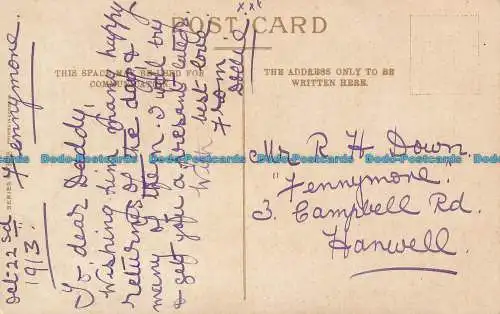 xxx
POST CARD
THIS SPACE MAY BE USED FOR
COMMUNICATION.
THE ADDRESS ONLY TO BE
WRITTEN HERE.
Fennymore.
Oct-22nd
1913.
To dear Daddy,
Wishing him many happy
returns of the day &
many of them. I will try
& get you a present later
With best love
From
Mr R H Down.
"Fennymore"
3. Campbell Rd.
Hanwell.
Dodo-Postcards Dodo-Postcards Dodo-Postcards Dodo-Postcards
Dodo-Postcards Dodo-Postcards Dodo-Postcards Dodo-Postcards